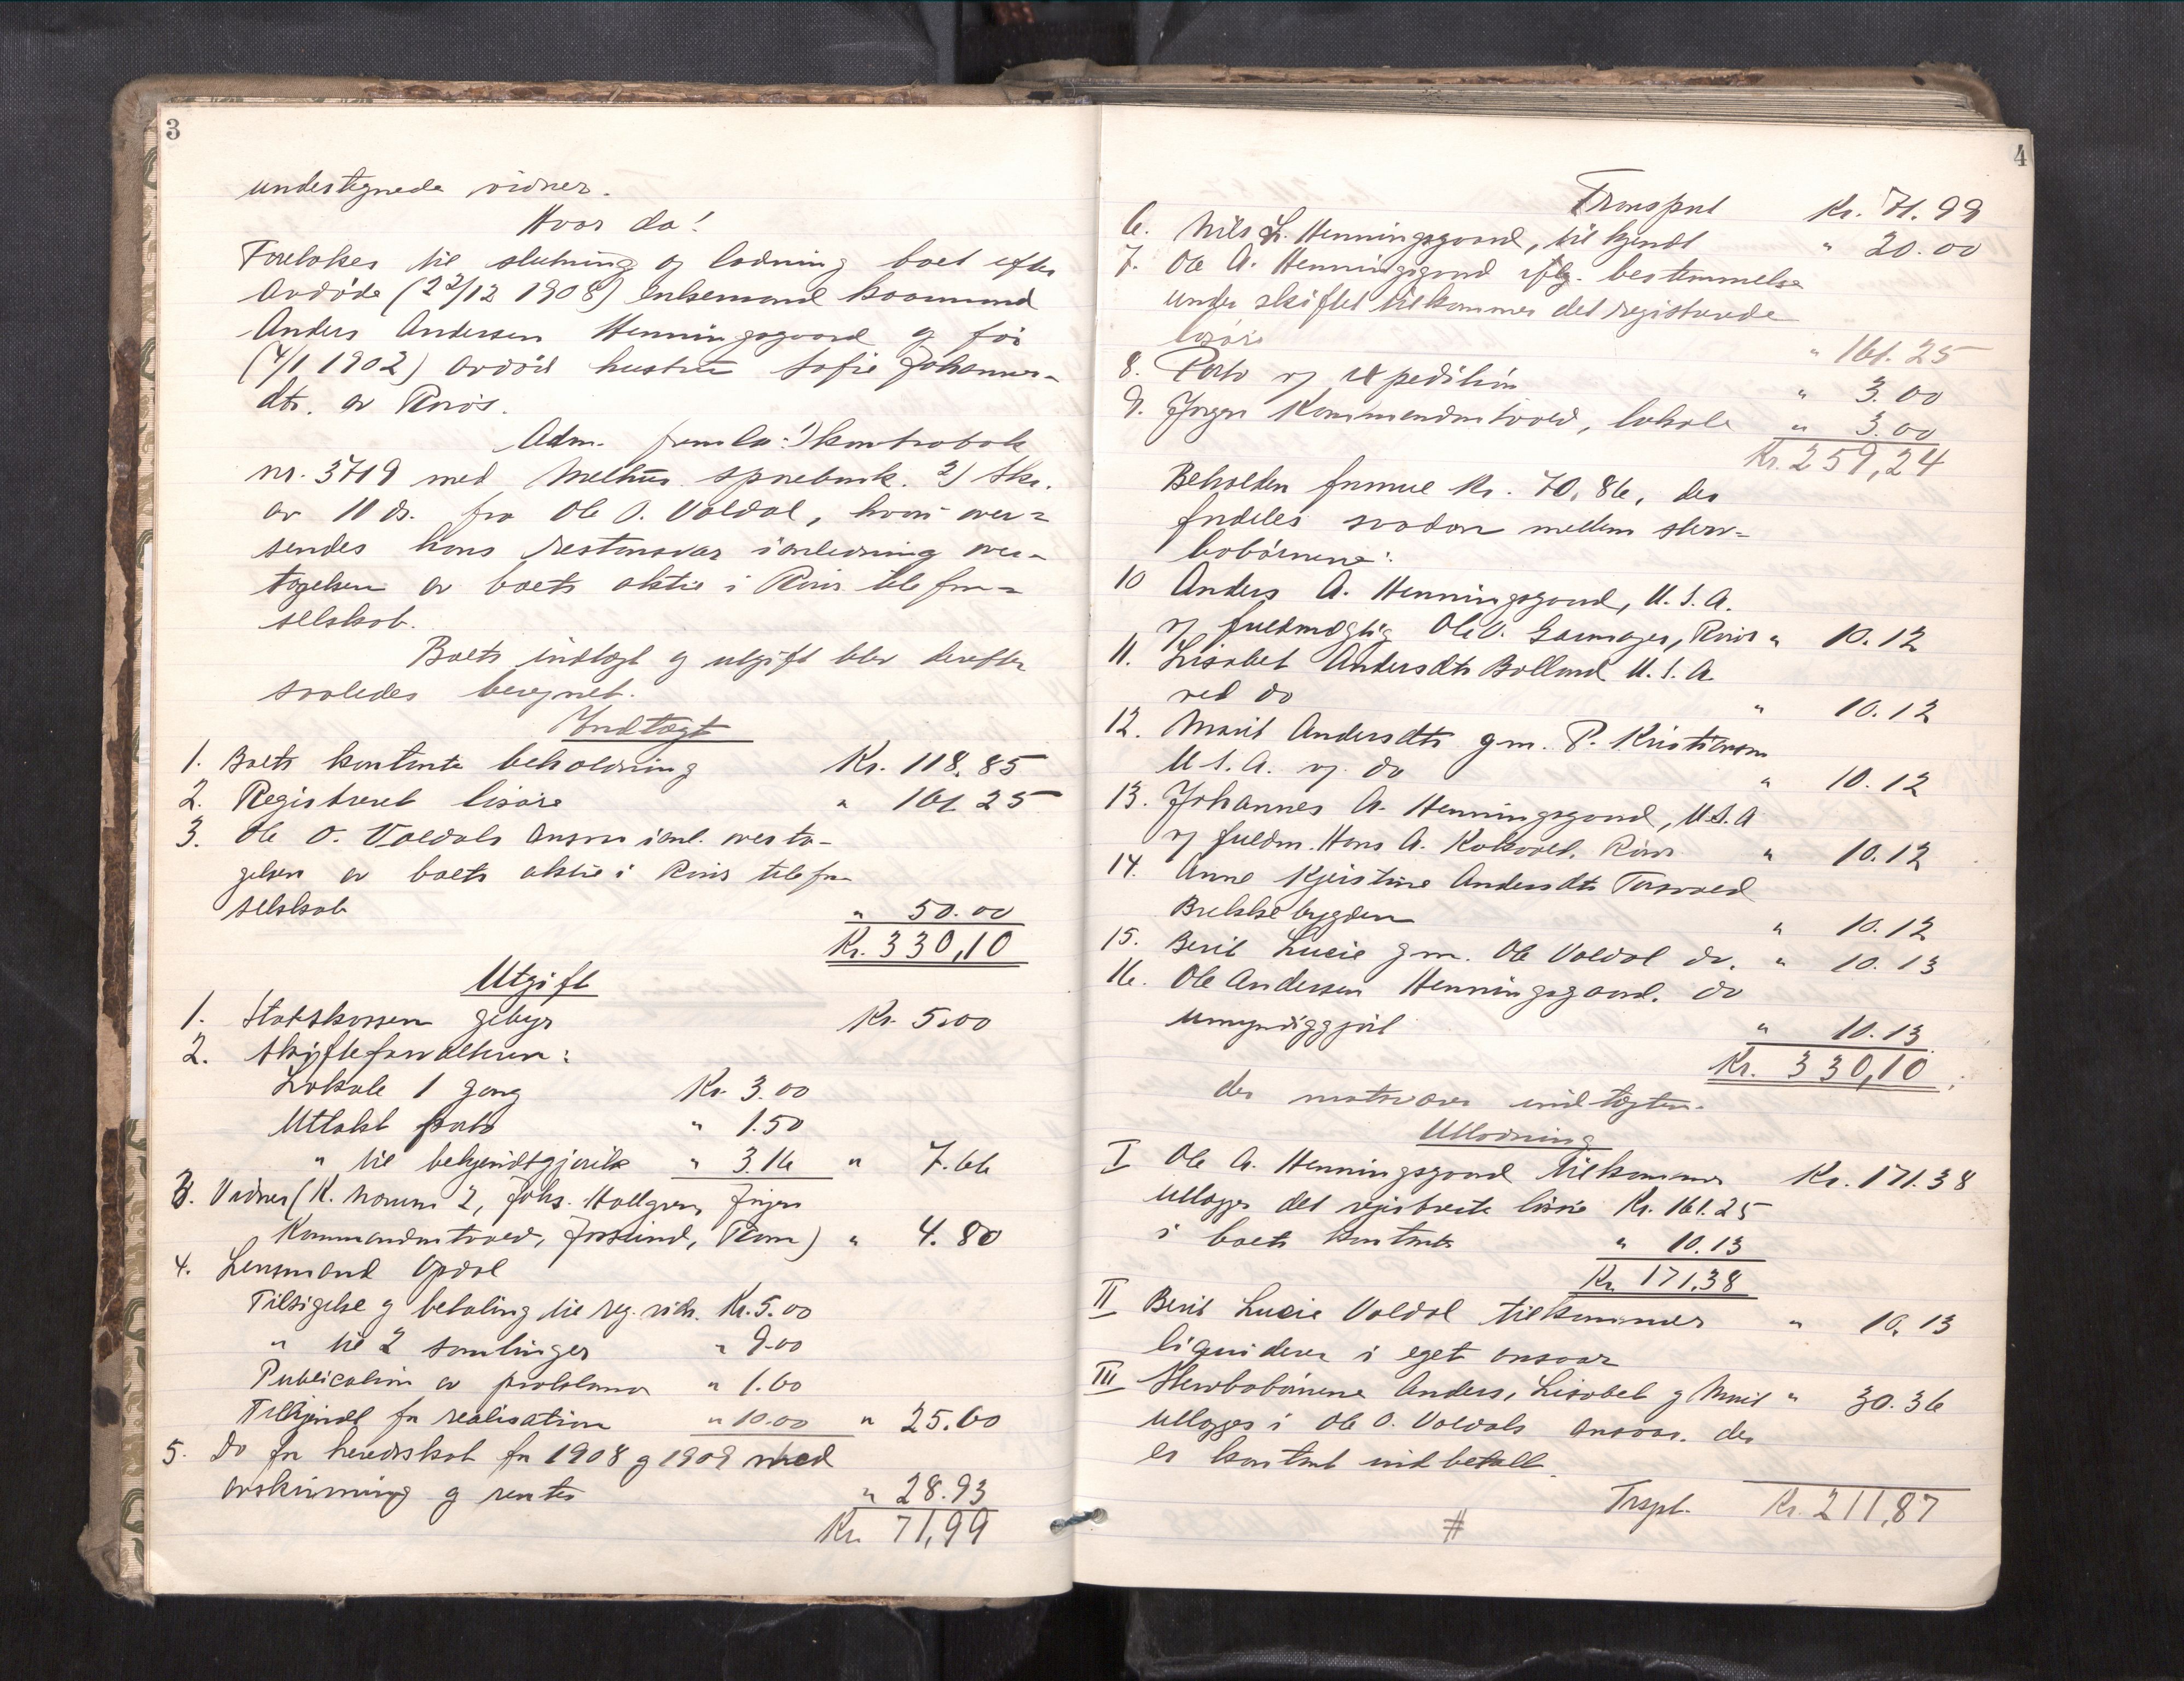 3
undertegnede vidner.
Hvor da!
Foretokes til slutning og lodning boet efter
avdöde (22/12 1908) enkemand kaarmand
Anders Andersen Henningsgaard og før
(4/1 1902) avdöd hustru Sofie Johannes-
dtr. av Røros.
Adm. fremla: 1) kontrabok
nr. 3719 med Melhus sparebank. 2) Skr.
av 11 ds. fra Ole O. Valdal, hvori over-
sendes hans restansvar i anledning over-
tagelsen av boets aktie i Røros telefon-
selskab.
Boets indtægt og utgift blev derefter
saaledes beregnet.
Indtægt
1. Boets kontante beholdning Kr. 118.85
2. Registreret lösöre " 161.25
3. Ole O. Valdals ansvar i anl. overta-
gelsen av boets aktie i Røros telefon
selskab " 50.00
Kr. 330,10
Utgift
1. Statskassen gebyr Kr. 5.00
2. Skifteforvalteren:
Lokale 1 gang Kr. 3.00
Uttakst porto " 1.50
" til bekjendtgjörelse " 3.16 " 7.66
3. Vidner (K. Norum 2, Johs. Hallgren, Jörgen
Kommandantvold, Fosslind, ) " 4.80
4. Lensmand Opdal
Tilsigelse og betaling til reg. vidn. Kr. 5.00
" til 2 samlinger " 9.00
Publication av proklama " 1.60
Tilkjendt for realisation " 10.00 " 25.60
5. Do for heredskat for 1908 og 1909 med
avskrivning og renter " 28.93
Kr. 71,99
4
Transport Kr. 71.99
6. Nils L. Henningsgaard, tilkjendt " 20.00
7. Ole A. Henningsgaard ifölg. bestemmelse
under skiftet tilkommer det registrerede
lösöre " 161.25
8. Porto og expedition " 3.00
9. Jörgen Kommandantvold, lokale " 3.00
Kr. 259,24
Beholden formue Kr. 70,86, der
fordeles saadan mellem sterv-
bobörnene:
10 Anders A. Henningsgaard, U.S.A.
v/ fuldmægtig Ole O. Galaager, Røros " 10.12
11. Lisabet Andersdtr Bolland U.S.A
ved do " 10.12
12. Marit Andersdtr gm. P. Kristiansen
U.S.A. v/ do " 10.12
13. Johannes A. Henningsgaard, U.S.A
v/ fuldm. Hans A. Kokvold, Røros " 10.12
14. Anne Kjerstine Andersdtr Torsvold
Brekkebygden " 10.12
15. Berit Lucie gm. Ole Valdal do. " 10.13
16. Ole Andersen Henningsgaard. do
umyndiggjort " 10.13
Kr. 330,10
der motsvarer indtægten.
Utlodning
I Ole A. Henningsgaard tilkommer Kr. 171.38
utlægges det registrerte lösöre Kr. 161.25
i boets kontante " 10.13
Kr. 171,38
II Berit Lucie Valdal tilkommer " 10.13
liquiderer i eget ansvar
III Stervbobörnene Anders, Lisabet og Marit " 30.36
utlægges i Ole O. Valdals ansvar. der
er kontant indbetalt.
Trspt. Kr. 211,87
#